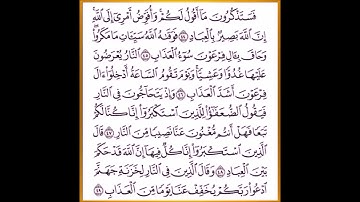 فَسَتَذْكُرُونَ مَآ أَقُولُ لَكُمْ وَأُفَوِّضُ أَمْرِىٓ إِلَى ٱللَّهِ
إِنَّ ٱللَّهَ بَصِيرٌۢ بِٱلْعِبَادِ ٤٤ فَوَقَىٰهُ ٱللَّهُ سَيِّـَٔاتِ مَا مَكَرُوا۟
وَحَاقَ بِـَٔالِ فِرْعَوْنَ سُوٓءُ ٱلْعَذَابِ ٤٥ ٱلنَّارُ يُعْرَضُونَ
عَلَيْهَا غُدُوًّا وَعَشِيًّا وَيَوْمَ تَقُومُ ٱلسَّاعَةُ أَدْخِلُوٓا۟ ءَالَ
فِرْعَوْنَ أَشَدَّ ٱلْعَذَابِ ٤٦ وَإِذْ يَتَحَآجُّونَ فِى ٱلنَّارِ
فَيَقُولُ ٱلضُّعَفَـٰٓؤُا۟ لِلَّذِينَ ٱسْتَكْبَرُوٓا۟ إِنَّا كُنَّا لَكُمْ
تَبَعًا فَهَلْ أَنتُم مُّغْنُونَ عَنَّا نَصِيبًا مِّنَ ٱلنَّارِ ٤٧ قَالَ
ٱلَّذِينَ ٱسْتَكْبَرُوٓا۟ إِنَّا كُلٌّ فِيهَآ إِنَّ ٱللَّهَ قَدْ حَكَمَ
بَيْنَ ٱلْعِبَادِ ٤٨ وَقَالَ ٱلَّذِينَ فِى ٱلنَّارِ لِخَزَنَةِ جَهَنَّمَ
ٱدْعُوا۟ رَبَّكُمْ يُخَفِّفْ عَنَّا يَوْمًا مِّنَ ٱلْعَذَابِ ٤٩